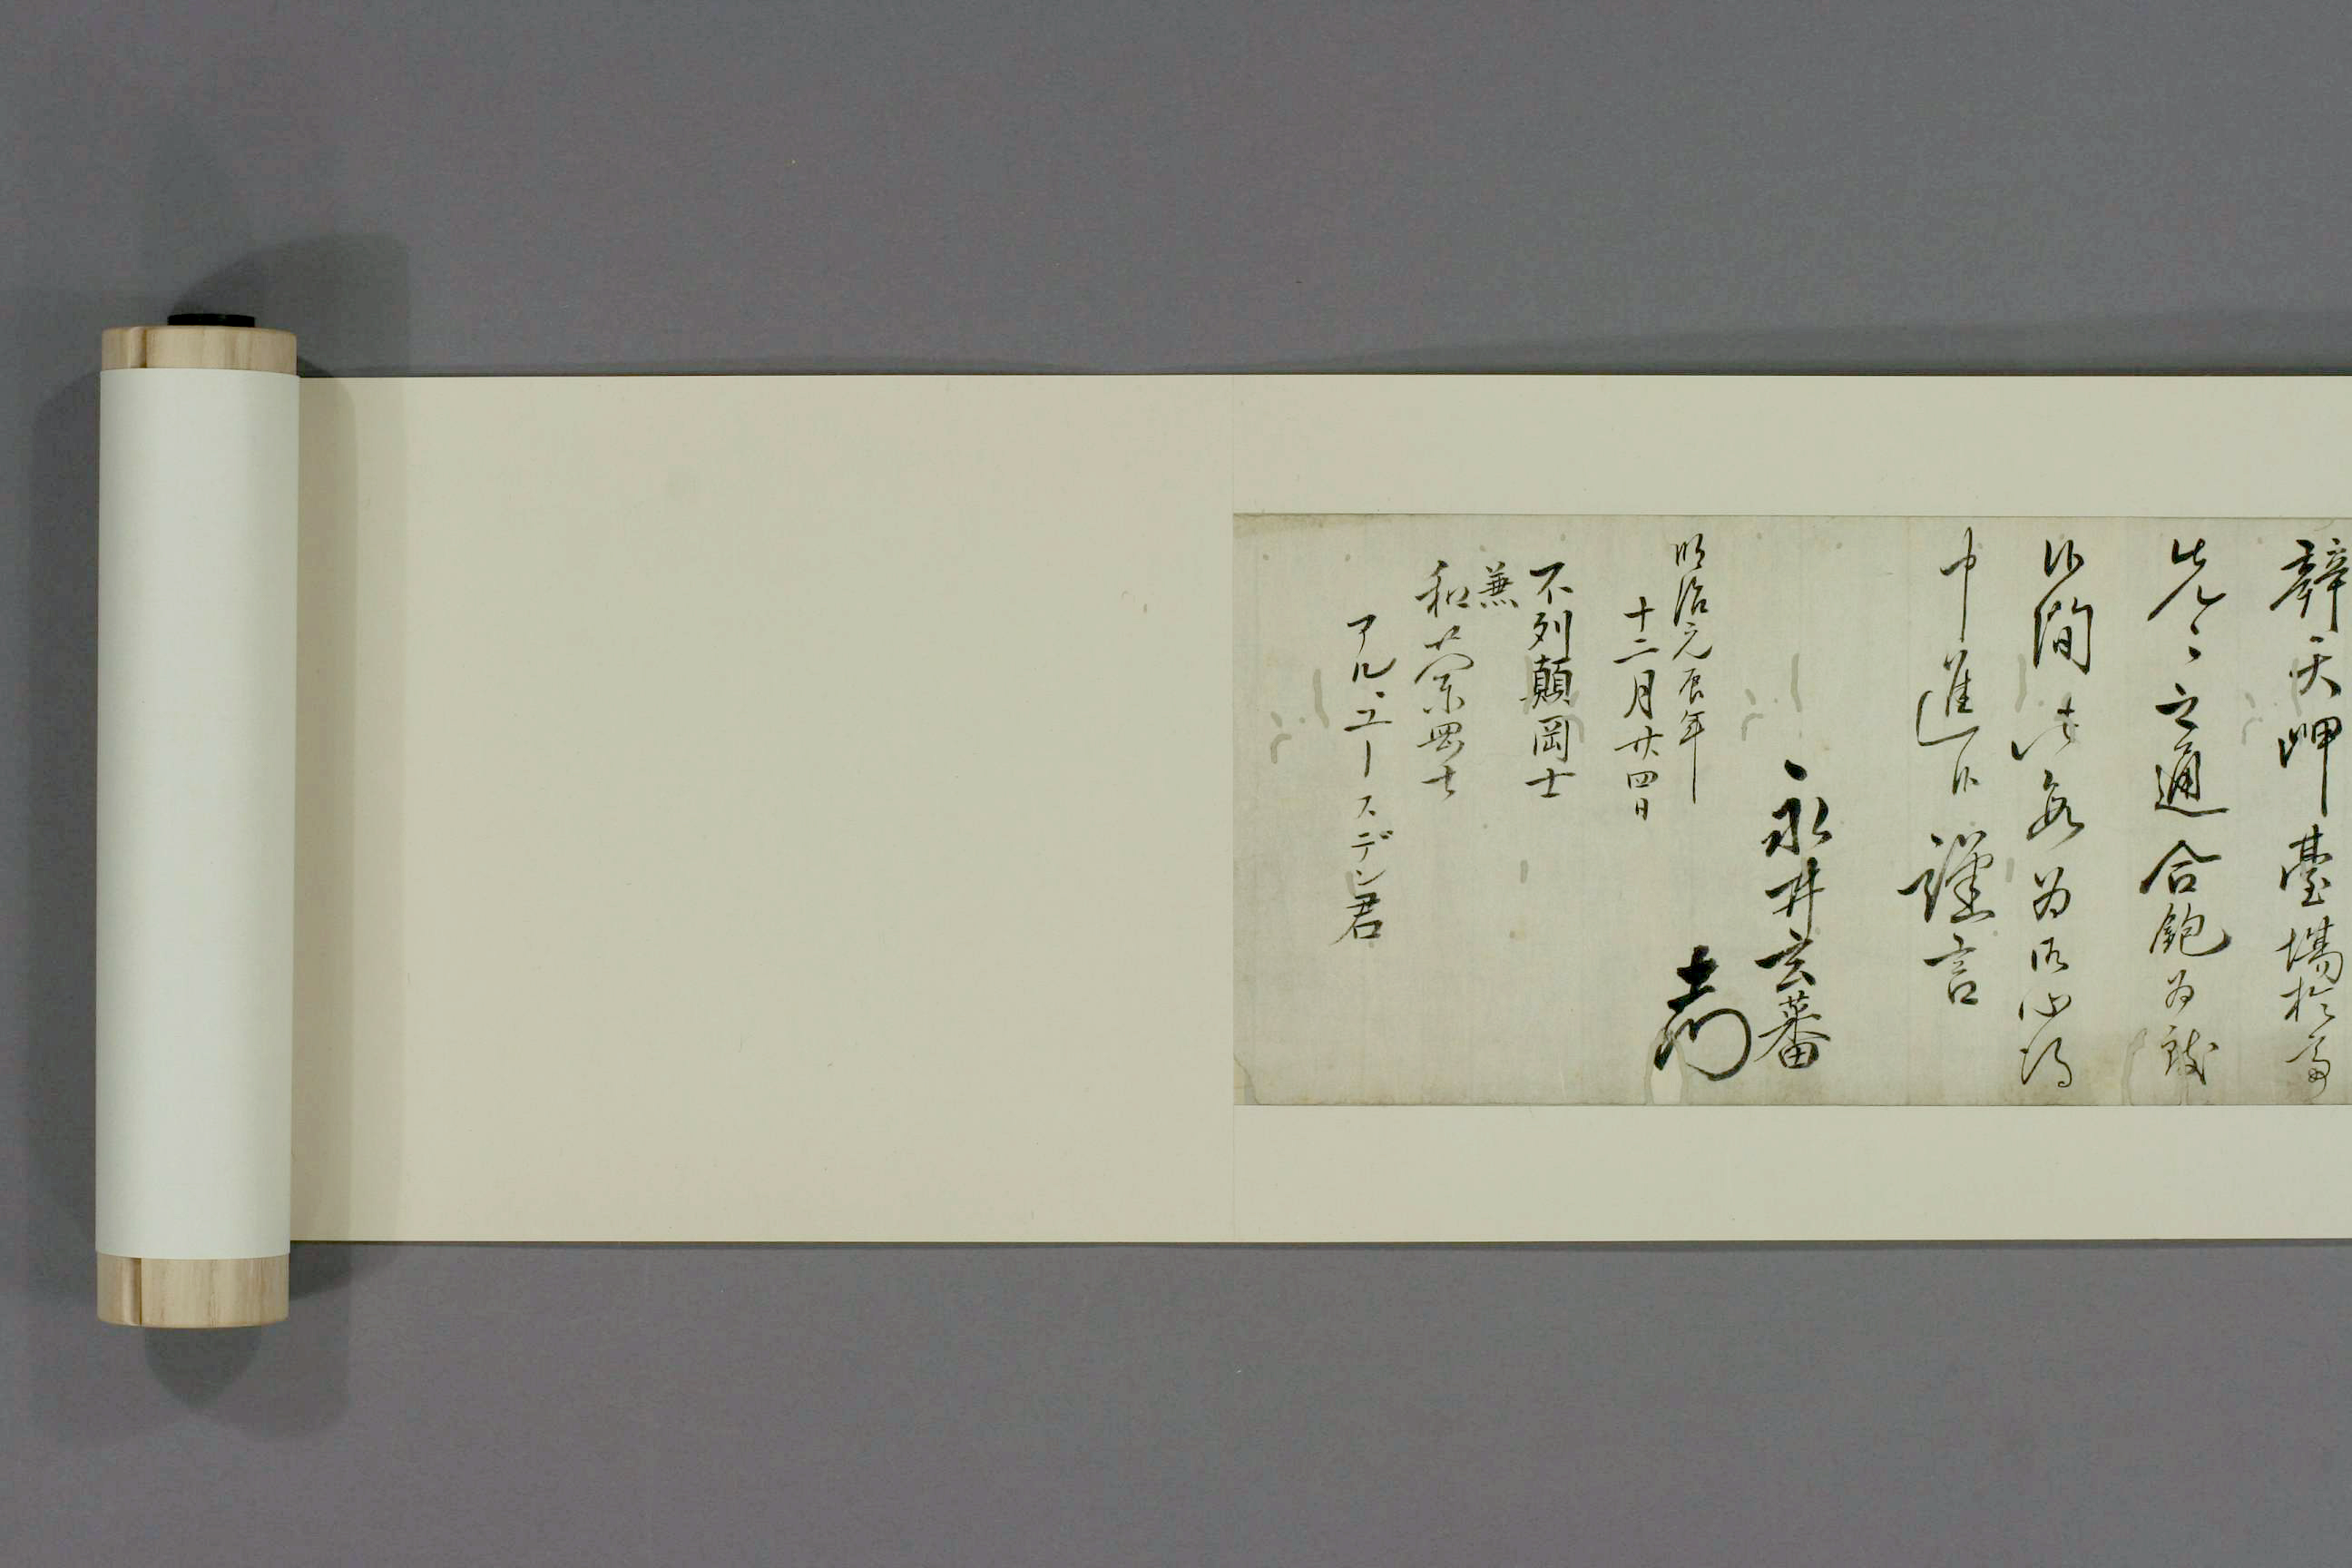 辯天岬臺場於而
先々之通合飽為致
候間此段為御心得
申進候謹言
永井玄蕃
明治元辰年
十二月廿四日
不列顛岡士
兼
和蘭岡士
アル、ユースデン君